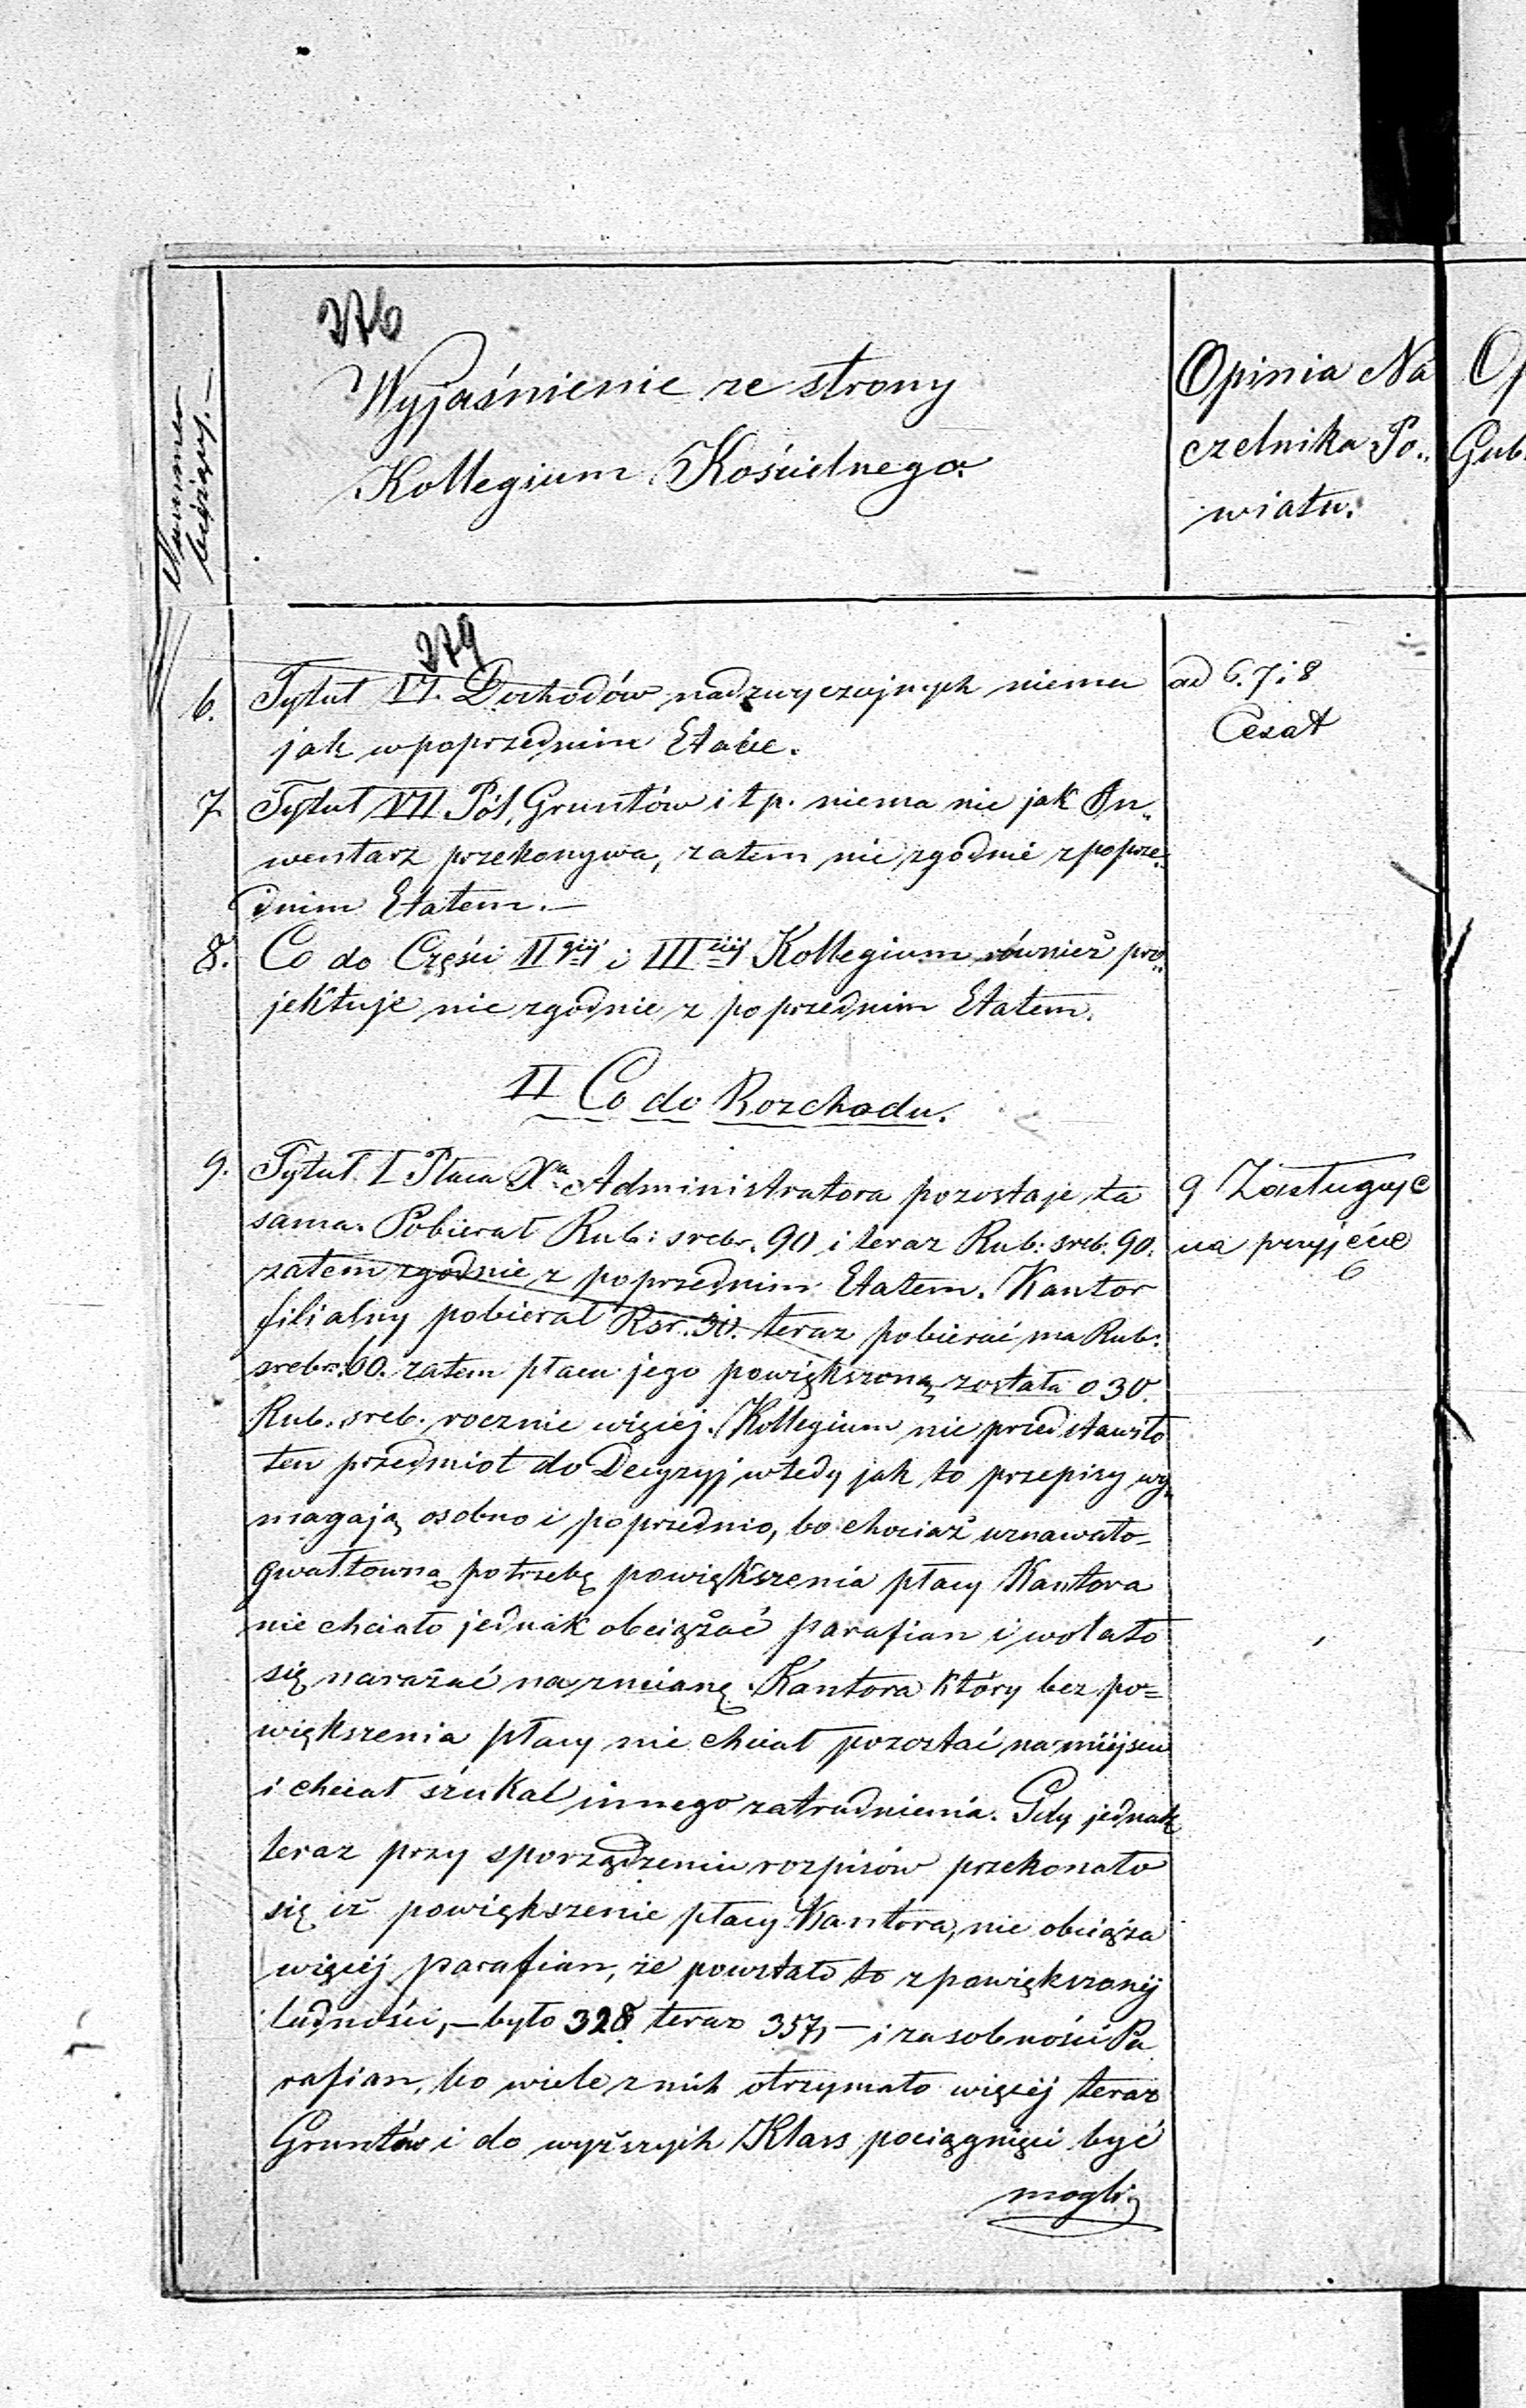 376
Numer
bieżący.—
Wyjaśnienie ze strony
Kollegium Kościelnego.
Opinia Na
czelnika Po„
wiatu.
Op
Gub.
379
6. Tytuł VI. Dochodów nadzwyczajnych niema
jak w poprzednim Etacie.
ad 6. 7 i 8
7. Tytuł VII. Pól, Gruntów i t p. niema nic jak In„
wentarz przekonywa, zatem nic zgodnie z poprze„
dnim Etatem.—
8. Co do Części II giij i III ciij Kollegium również pro„
jektuje nic zgodnie z poprzednim Etatem.
II Co do Rozchodu.
9. Tytuł I Płaca Xa Administratora pozostaje ta
sama. Pobierał Rub: srebr. 90 i teraz Rub: sreb: 90.
zatem zgodnie z poprzednim Etatem. Kantor
filialny pobierał Rsr. 30. teraz pobierać ma Rub:
srebr: 60. zatem płaca jego powiększoną została o 30.
Rub. sreb. rocznie więcej. Kollegium nie przedstawiło
ten przedmiot do Decyzyj wtedy jak to przepisy wy„
magają osobno i poprzednio, bo chociaż uznawało
gwałtowną potrzebę powiększenia płacy Kantora
nie chciało jednak obciążać parafian i wolało
się narażać na zmianę Kantora który bez po=
większenia płacy nie chciał pozostać na miejscu
i chciał szukał innego zatrudnienia. Gdy jednak
teraz przy sporządzeniu rozpisów przekonało
się iż powiększenie płacy Kantora, nie obciąża
więcej parafian, że powstało to z powiększonej
ludności,— było 328 teraz 357,— i zasobności Pa
rafian, bo wiele z nich otrzymało więcej teraz
Gruntów i do wyższych Klass pociągnięci być
mogli
9 Zasługuje
na przyjęcie